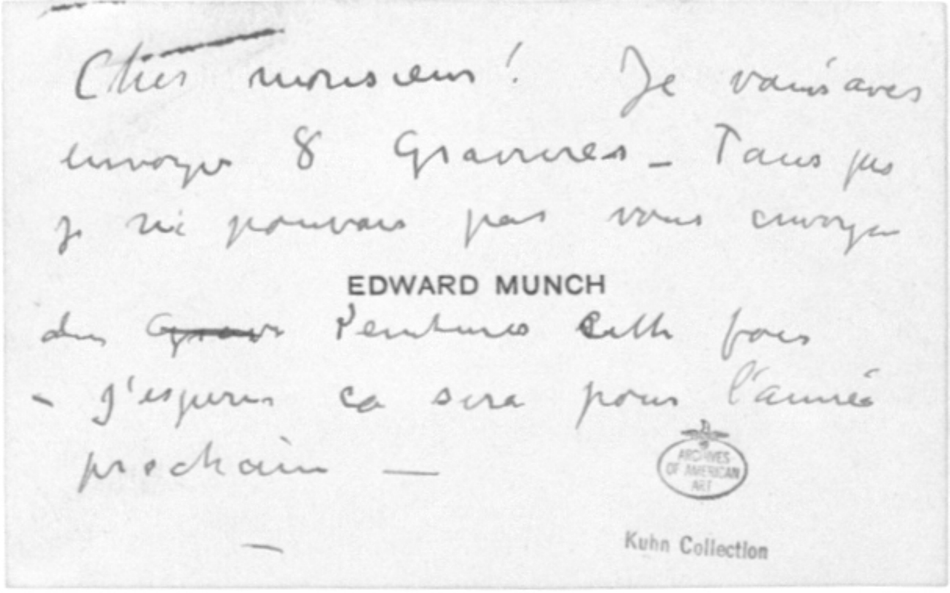 Cher monsieur! Je vous aves
envoyer 8 Gravures – Tous pas
je ne pouvais pas vous envoyer
EDWARD MUNCH
des Gravs Peintures cette fois
– j'esperes ca sera pour l'année
prochain —
ARCHIVES
OF AMERICAN
ART
Kuhn Collection